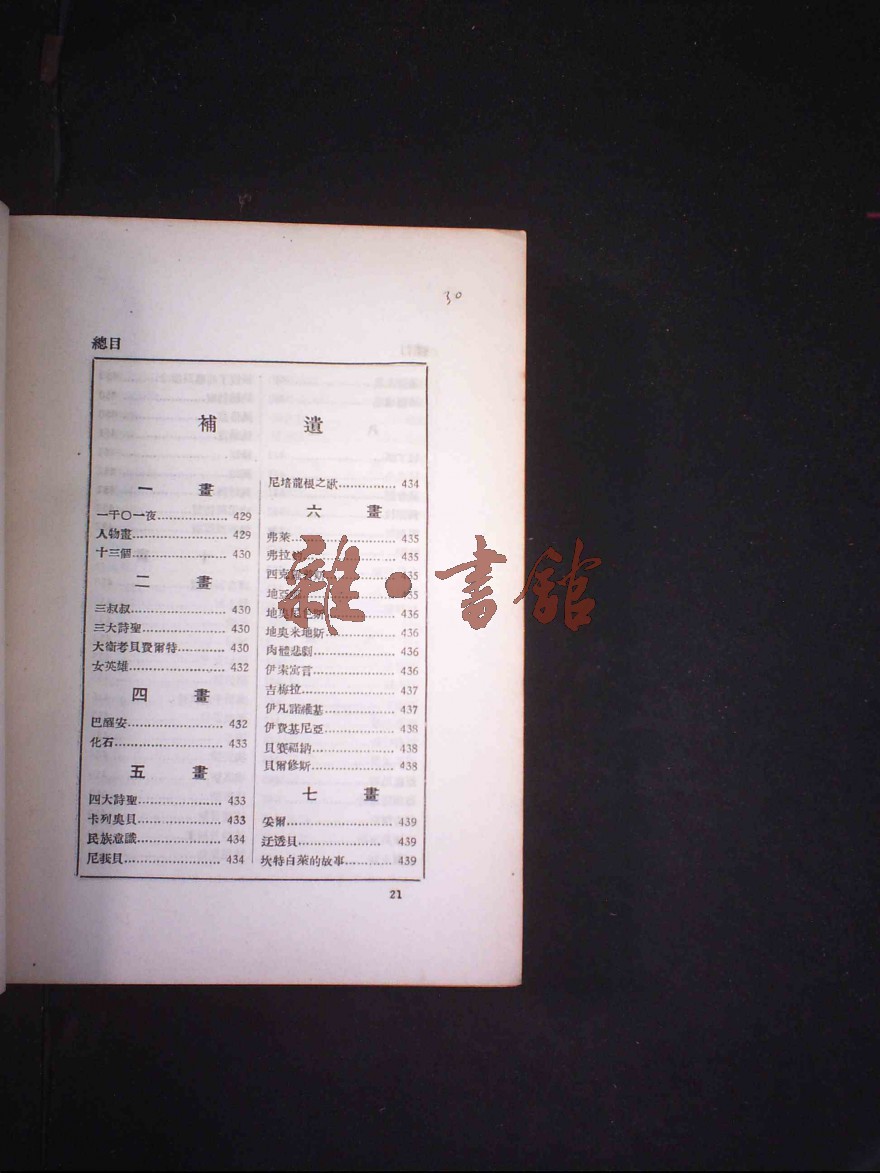 30
總目
補 遺
一 畫
一千〇一夜 429
人物畫 429
十三個 430
二 畫
三叔叔 430
三大詩聖 430
大衛考貝費爾特 430
女英雄 432
四 畫
巴醒安 432
化石 433
五 畫
四大詩聖 433
卡列奥貝 433
民族意識 434
尼荻貝 434
尼培龍根之歌 434
六 畫
弗萊 435
弗拉 435
西克 435
地亞 435
地奥尼 斯 436
地奥米地斯 436
肉體悲劇 436
伊索寓言 436
吉梅拉 437
伊凡諾維基 437
伊費基尼亞 438
貝賽福納 438
貝爾修斯 438
七 畫
妥爾 439
迂透貝 439
坎特白萊的故事 439
21
雜·書館